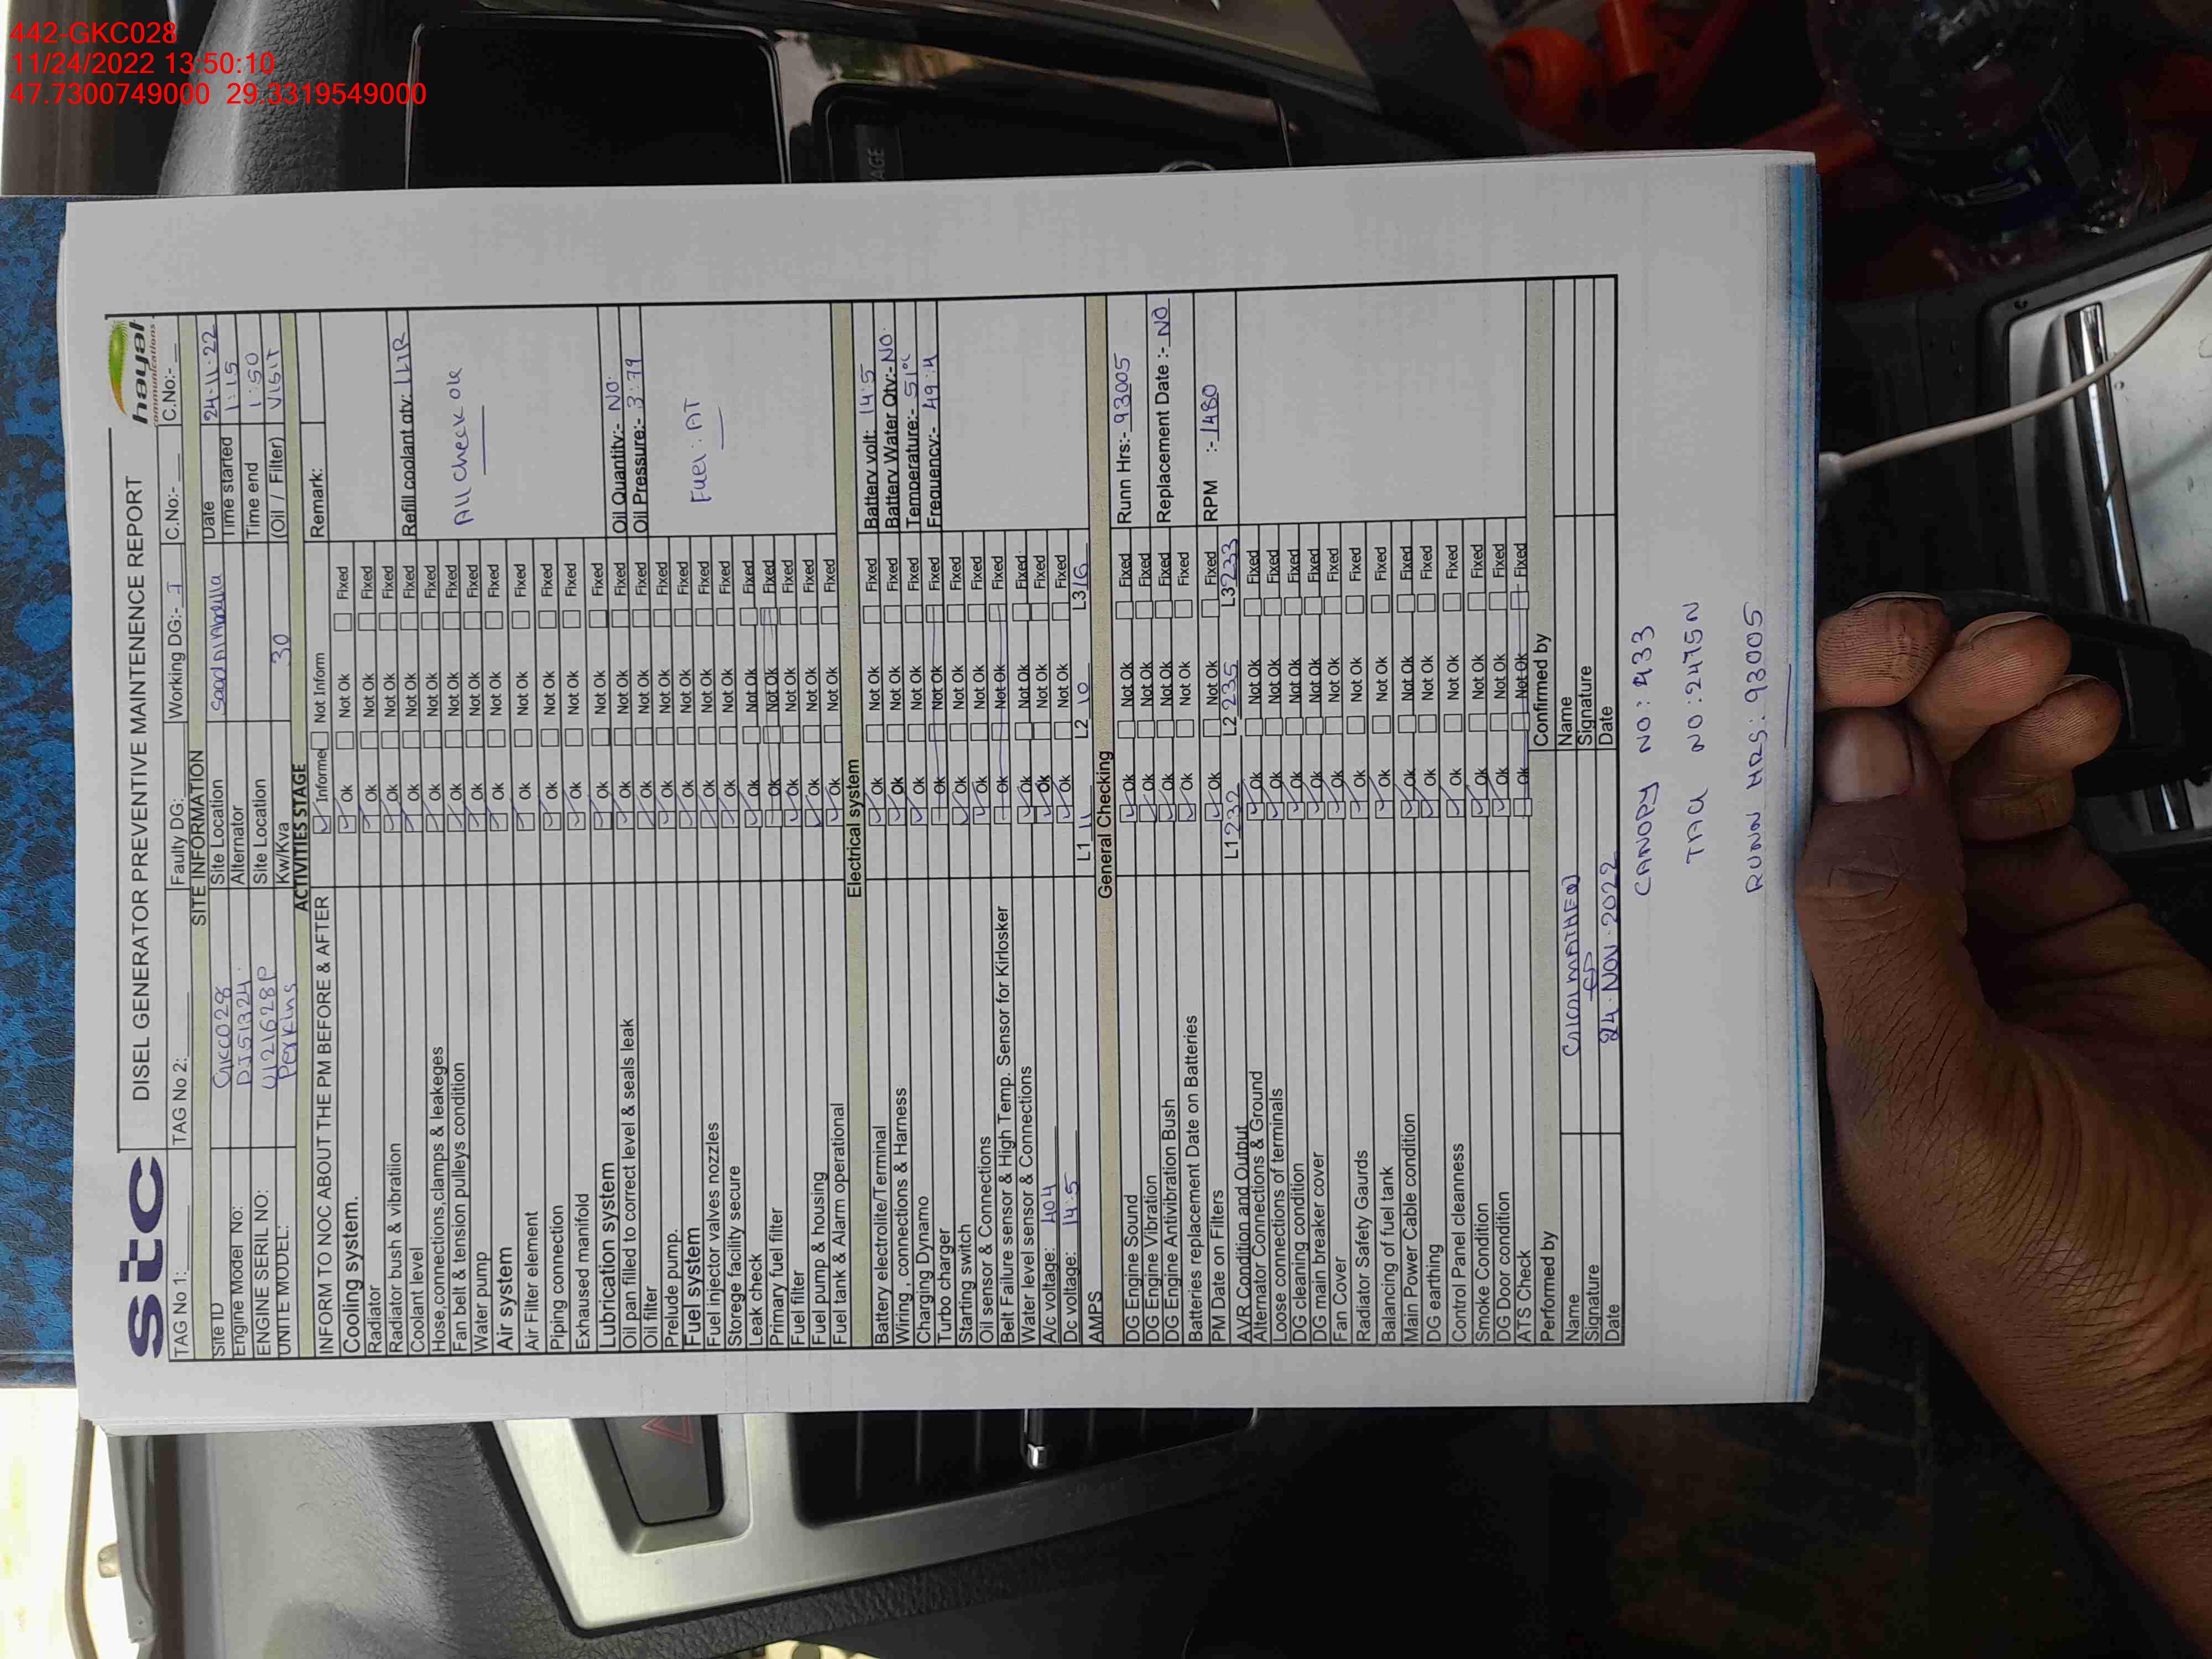 442-GKC028
11/24/2022 13:50:10
47.7300749000 29.3319549000
AGE
stc
DISEL GENERATOR PREVENTIVE MAINTENENCE REPORT
hayat
communications
TAG No 1: TAG No 2: Faulty DG: Working DG:- I C.No:- C.No:-
SITE INFORMATION
Site ID GKC028 Site Location Saad Al Abdulla Date 24-11-22
Engine Model No: DJ51324 Alternator Time started 1:15
ENGINE SERIL NO: U121628P Site Location Time end 1:50
UNITE MODEL: Perkins Kw/Kva 30 (Oil / Filter) VISIT
ACTIVITIES STAGE
INFORM TO NOC ABOUT THE PM BEFORE & AFTER Informe Not Inform Remark:
Cooling system. Ok Not Ok Fixed
Radiator Ok Not Ok Fixed
Radiator bush & vibratiion Ok Not Ok Fixed
Coolant level Ok Not Ok Fixed Refill coolant qty: 1 LTR
Hose,connections,clamps & leakeges Ok Not Ok Fixed
Fan belt & tension pulleys condition Ok Not Ok Fixed
All check ok
Water pump Ok Not Ok Fixed
Air system Ok Not Ok Fixed
Air Filter element Ok Not Ok Fixed
Piping connection Ok Not Ok Fixed
Exhaused manifold Ok Not Ok Fixed
Lubrication system Ok Not Ok Fixed
Oil pan filled to correct level & seals leak Ok Not Ok Fixed Oil Quantity:- NO
Oil filter Ok Not Ok Fixed Oil Pressure:- 3.79
Prelude pump. Ok Not Ok Fixed
Fuel system Ok Not Ok Fixed
Fuel injector valves nozzles Ok Not Ok Fixed
Fuel: AT
Storege facility secure Ok Not Ok Fixed
Leak check Ok Not Ok Fixed
Primary fuel filter Ok Not Ok Fixed
Fuel filter Ok Not Ok Fixed
Fuel pump & housing Ok Not Ok Fixed
Fuel tank & Alarm operational Ok Not Ok Fixed
Electrical system
Battery electrolite/Terminal Ok Not Ok Fixed Battery volt: 14.5
Wiring , connections & Harness Ok Not Ok Fixed Battery Water Qty:- NO
Charging Dynamo Ok Not Ok Fixed Temperature:- 51°C
Turbo charger Ok Not Ok Fixed Frequency:- 49.4
Starting switch Ok Not Ok Fixed
Oil sensor & Connections Ok Not Ok Fixed
Belt Failure sensor & High Temp. Sensor for Kirlosker Ok Not Ok Fixed
Water level sensor & Connections Ok Not Ok Fixed
A/c voltage: 404 Ok Not Ok Fixed
Dc voltage: 14.5 Ok Not Ok Fixed
AMPS L1 11 L2 10 L3 16
General Checking
DG Engine Sound Ok Not Ok Fixed Runn Hrs:- 93005
DG Engine Vibration Ok Not Ok Fixed
DG Engine Antivibration Bush Ok Not Ok Fixed Replacement Date :- NO
Batteries replacement Date on Batteries Ok Not Ok Fixed
PM Date on Filters Ok Not Ok Fixed RPM :- 1480
AVR Condition and Output L1 232 L2 235 L3 233
Alternator Connections & Ground Ok Not Ok Fixed
Loose connections of terminals Ok Not Ok Fixed
DG cleaning condition Ok Not Ok Fixed
DG main breaker cover Ok Not Ok Fixed
Fan Cover Ok Not Ok Fixed
Radiator Safety Gaurds Ok Not Ok Fixed
Balancing of fuel tank Ok Not Ok Fixed
Main Power Cable condition Ok Not Ok Fixed
DG earthing Ok Not Ok Fixed
Control Panel cleanness Ok Not Ok Fixed
Smoke Condition Ok Not Ok Fixed
DG Door condition Ok Not Ok Fixed
ATS Check Ok Not Ok Fixed
Performed by Confirmed by
Name Name
Signature Signature
Date 24-NOV-2022 Date
CANOPY NO: 433
TAG NO: 2475N
RUNN HRS: 93005